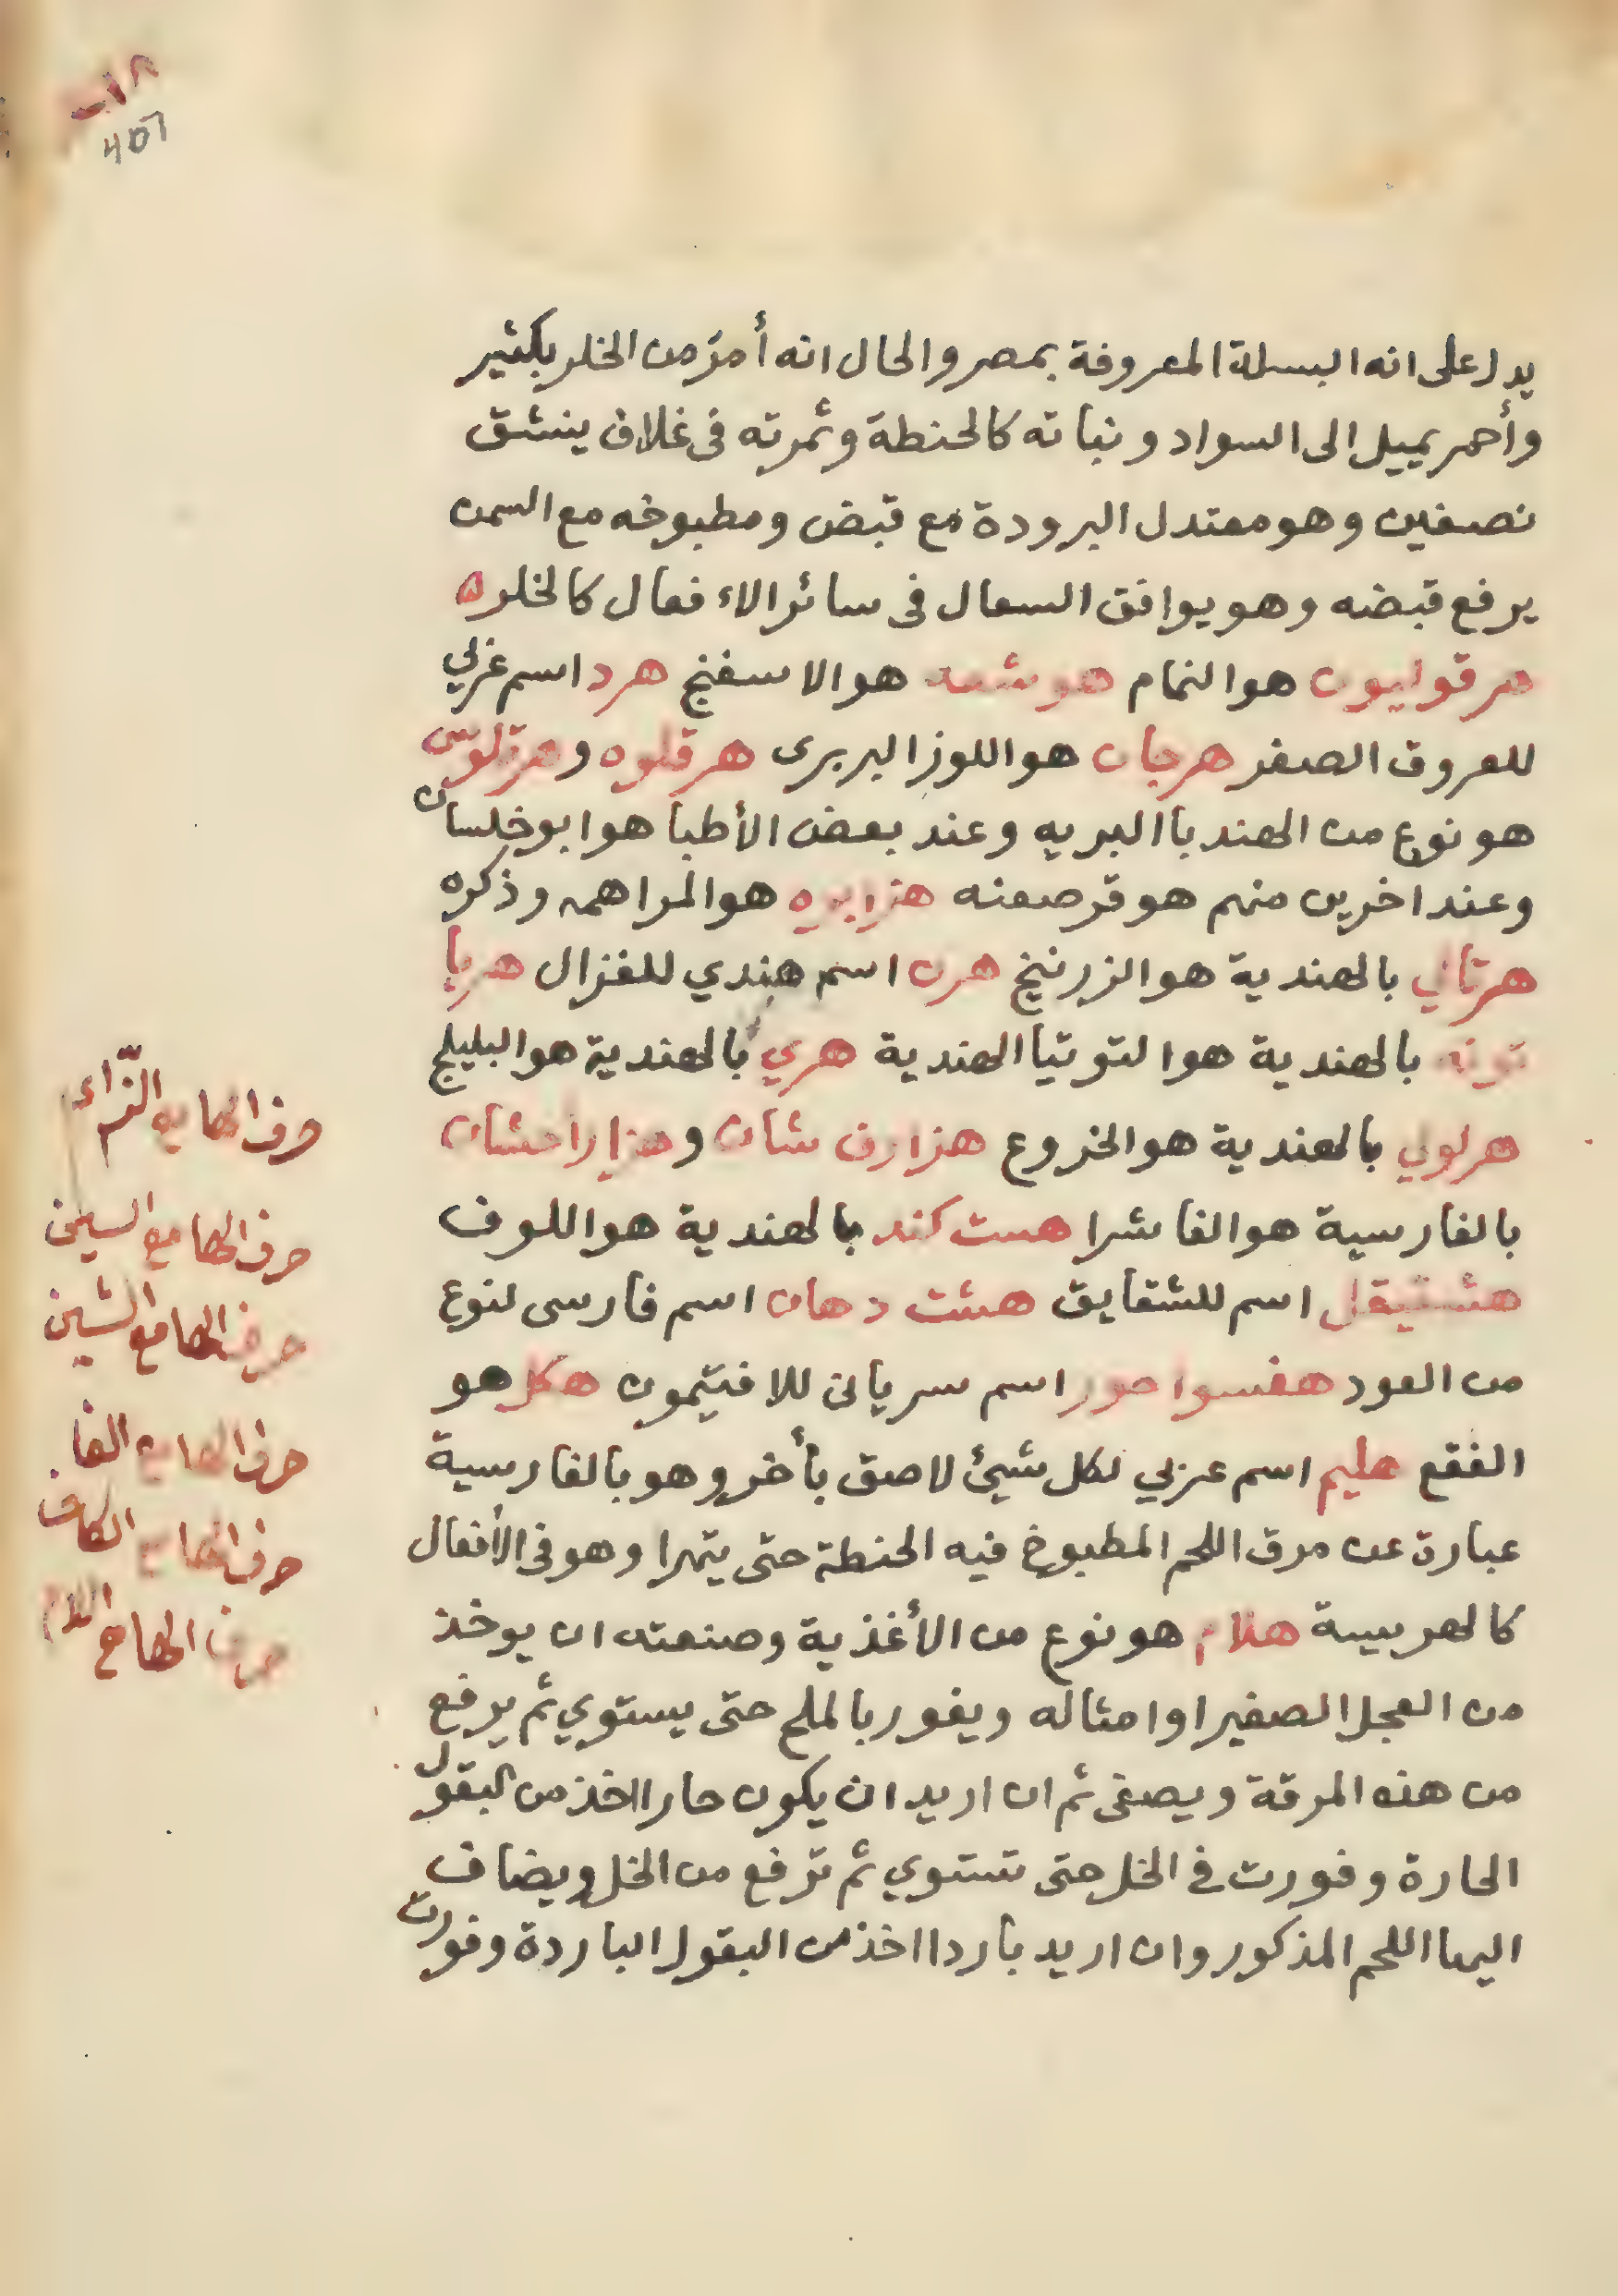 يدل على انه البسلة المعروفة بمصر والحال انه أمرّ من الخلر بكثير
وأحمر يميل الى السواد ونباته كالحنطة وثمرته فى غلاف ينشق
نصفين وهو معتدل البرودة مع قبض ومطبوخه مع السمن
يرفع قبضه وهو يوافق السعال فى سائر الاءفعال كالخلر ه
هرقوليون هو النمام هو الاسفنج هرد اسم عربي
للعروق الصفر هرجان هو اللوز البربرى هرقلوه و
هو نوع من الهندبا البريه وعند بعض الأطبا هو ابوخلسان
وعند اخرين منهم هو قرصعنه هو المراهمه وذكره
هرتالي بالهندية هو الزرنيخ هرن اسم هندي للغزال هريا
توته بالهندية هو التوتيا الهندية هري بالهندية هو البليلج
هرلولي بالهندية هو الخروع هزارف شان وهزاراحشان
بالفارسية هو الفاشرا هست كند بالهندية هو اللوف
هشتيقل اسم للشقايق هشت دهان اسم فارسى لنوع
من العود هفسواحور اسم سريانى للافتيمون هكل هو
الفقع هليم اسم عربي لكل شيئ لاصق بأخر وهو بالفارسية
عبارة عن مرق اللحم المطبوخ فيه الحنطة حتى يتهرا وهو فى الأفعال
كالهريسة هلام هو نوع من الأغذية وصنعته ان يوخذ
من العجل الصغير او امثاله ويفور بالملح حتى يستوي ثم يرفع
من هذه المرقة ويصفى ثم ان اريد ان يكون حارا اخذ من البقول
الحارة وفورت في الخل حتى تستوي ثم ترفع من الخل ويضاف
اليها اللحم المذكور وان اريد باردا اخذ من البقول الباردة وفورت
حرف الها مع الزّاء
حرف الها مع السين
حرف الها مع الشين
حرف الها مع الفا
حرف الها مع الكاف
حرف الها مع اللام